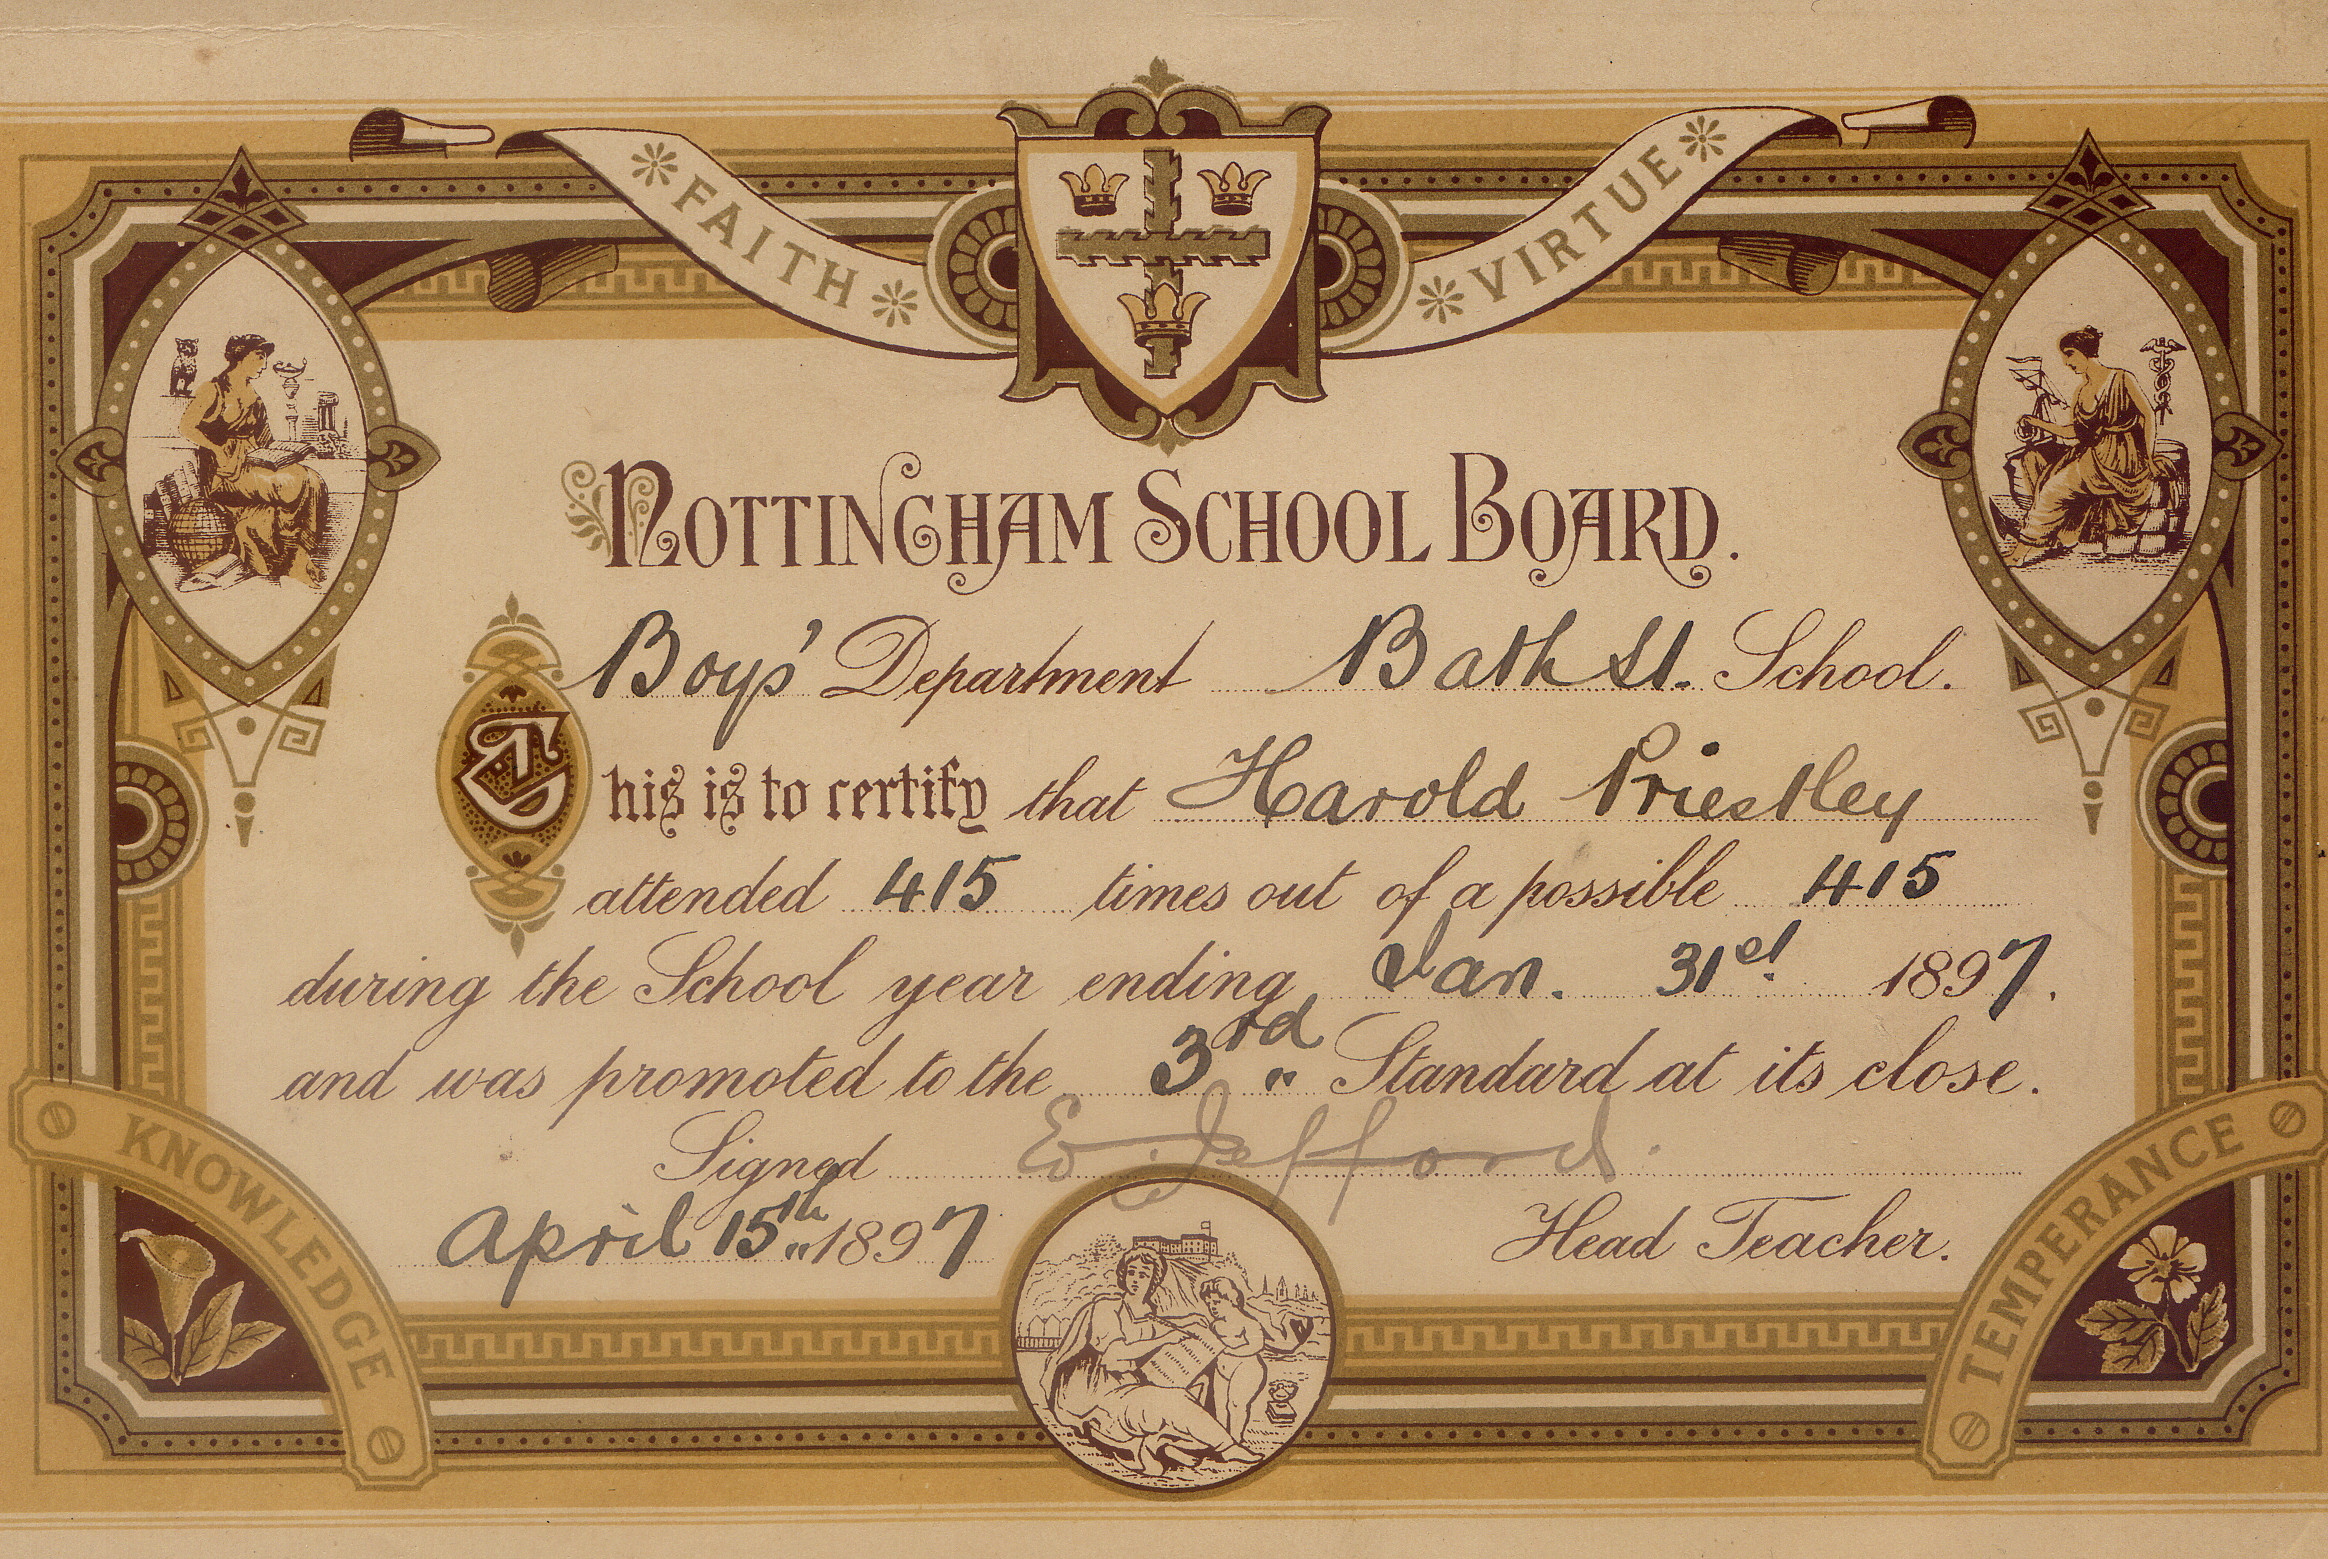 FAITH
VIRTUE
NOTTINGHAM SCHOOL BOARD.
Boys' Department Bath St. School.
This is to certify that Harold Priestley
attended 415 times out of a possible 415
during the School year ending Jan. 31st 1897.
and was promoted to the 3rd Standard at its close.
Signed Ed. Jefford.
April 15th 1897
Head Teacher.
KNOWLEDGE
TEMPERANCE